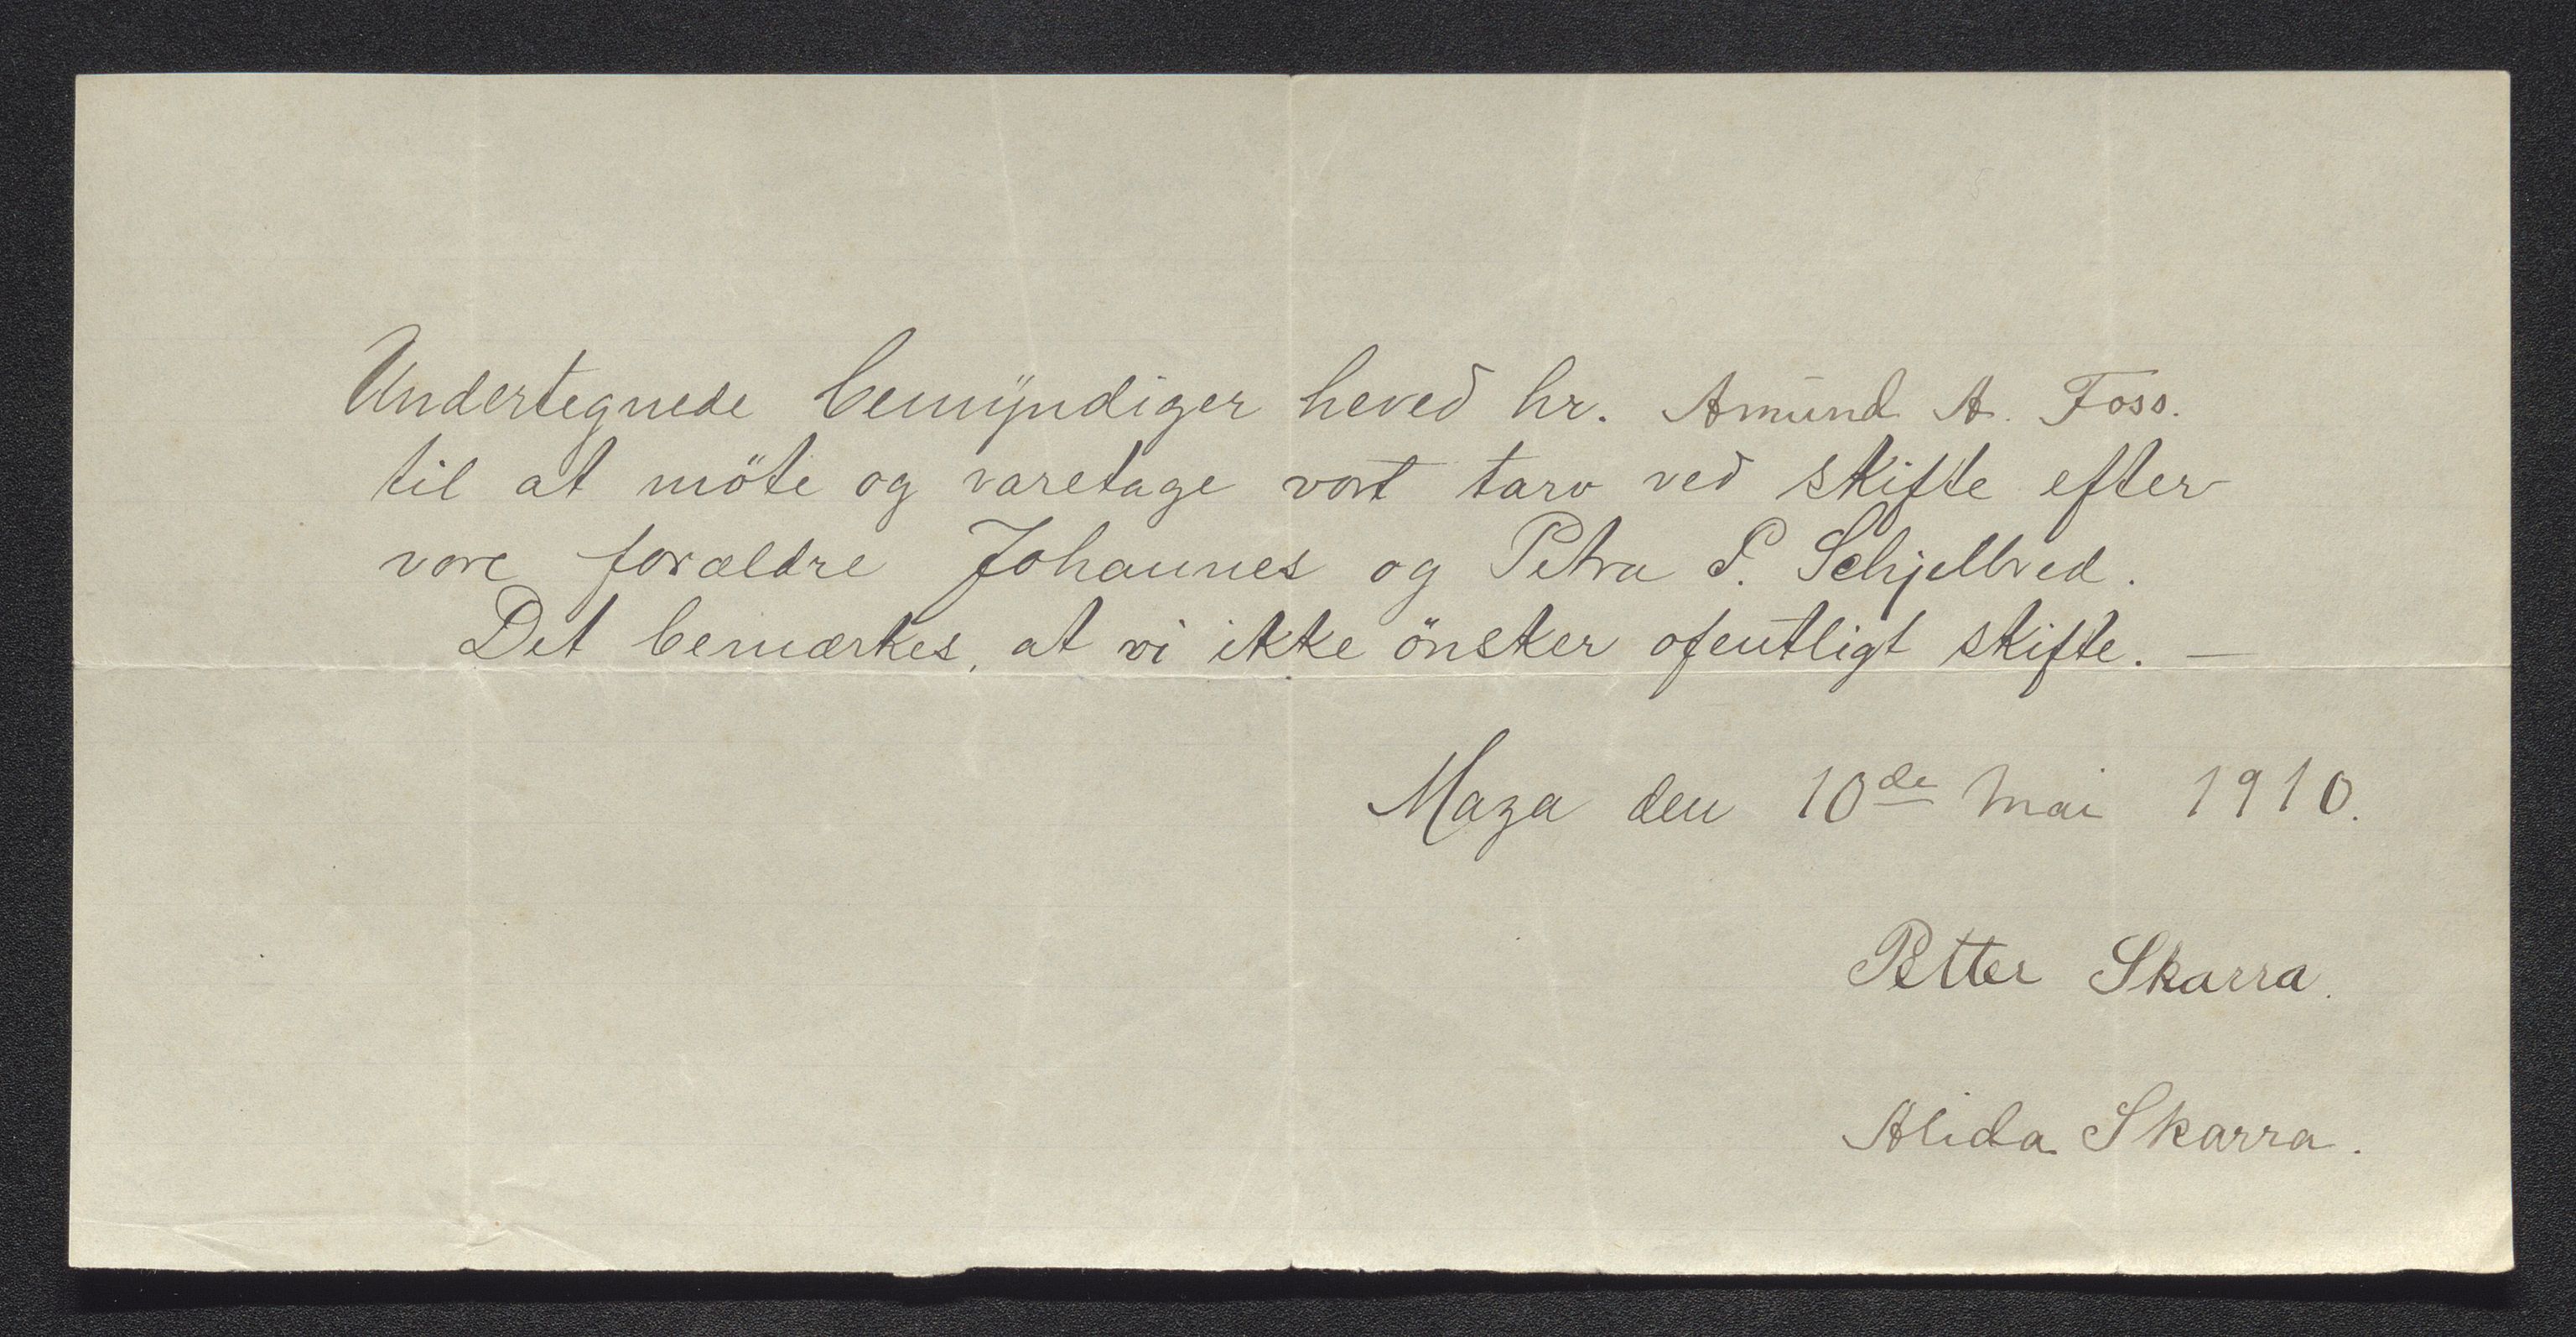 Undertegnede bemÿndiger heved hr. Amund A. Foss.
til at möte og varetage vort tarv ved skifte efter
vore forældre Johannes og Petra P. Schjelbred.
Det bemærkes, at vi ikke önsker ofentligt skifte. —
Maza den 10de Mai 1910.
Petter Skarra.
Alida Skarra.